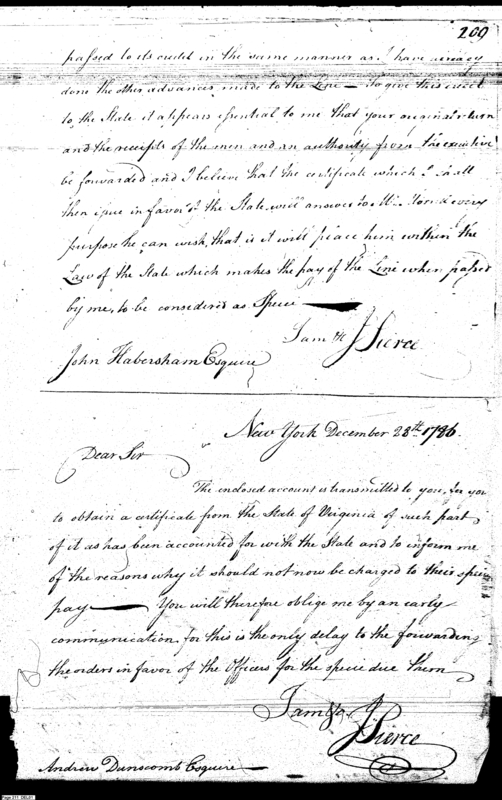 209
passed to its credit in the same manner as I have already
done the other advances made to the Line — To give this credit
to the State it appears essential to me that your original return
and the receipts of the men and an authority from the executive
be forwarded and I believe that the certificate which I shall
then issue in favor of the State will answer to Mr. every
purpose he can wish, that is it will place him within the
Law of the State which makes the pay of the Line when passed
by me, to be considered as Specie —
I am &c J Pierce
John Habersham Esquire
New York December 28th 1786.
Dear Sir
The enclosed account is transmitted to you, for you
to obtain a certificate from the State of Virginia of such part
of it as has been accounted for with the State and to inform me
of the reasons why it should not now be charged to their specie
pay — You will therefore oblige me by an early
communication, for this is the only delay to the forwarding
the orders in favor of the Officers for the specie due them
I am &c. J Pierce
Andrew Dunscomb Esquire —